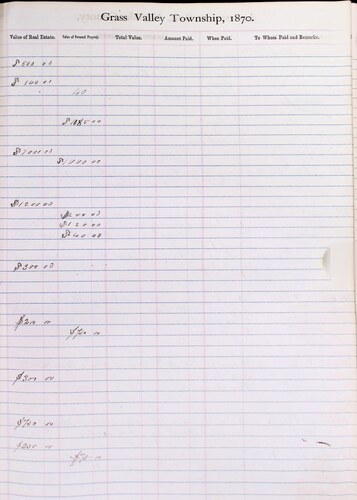 Grass Valley Township, 1870.
Value of Real Estate. Value of Personal Property. Total Value. Amount Paid. When Paid. To Whom Paid and Remarks.
$500 00
$100 00
40
$1000 00
$1200 00
$200 00
$120 00
$40 00
$300 00
$200 00
$700 00
$300 00
$700 00
$200 00